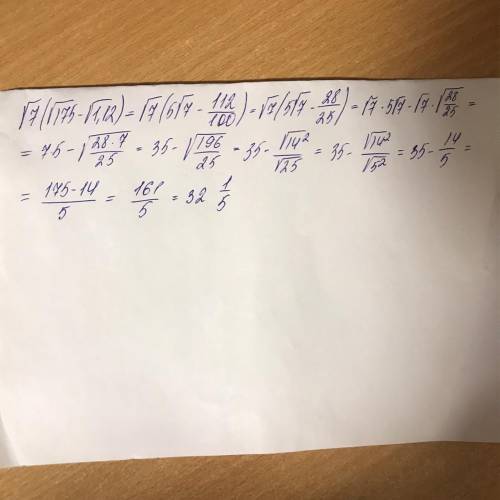 √7(√175-√1,12)=√7(5√7-112/100)=√7(5√7-28/25)=√7·5√7-√7·√28/25=
=75-√28·7/25=35-√196/25=35-√14²/√25=35-√14²/√5²=35-14/5=
=175-14/5=161/5=32 1/5